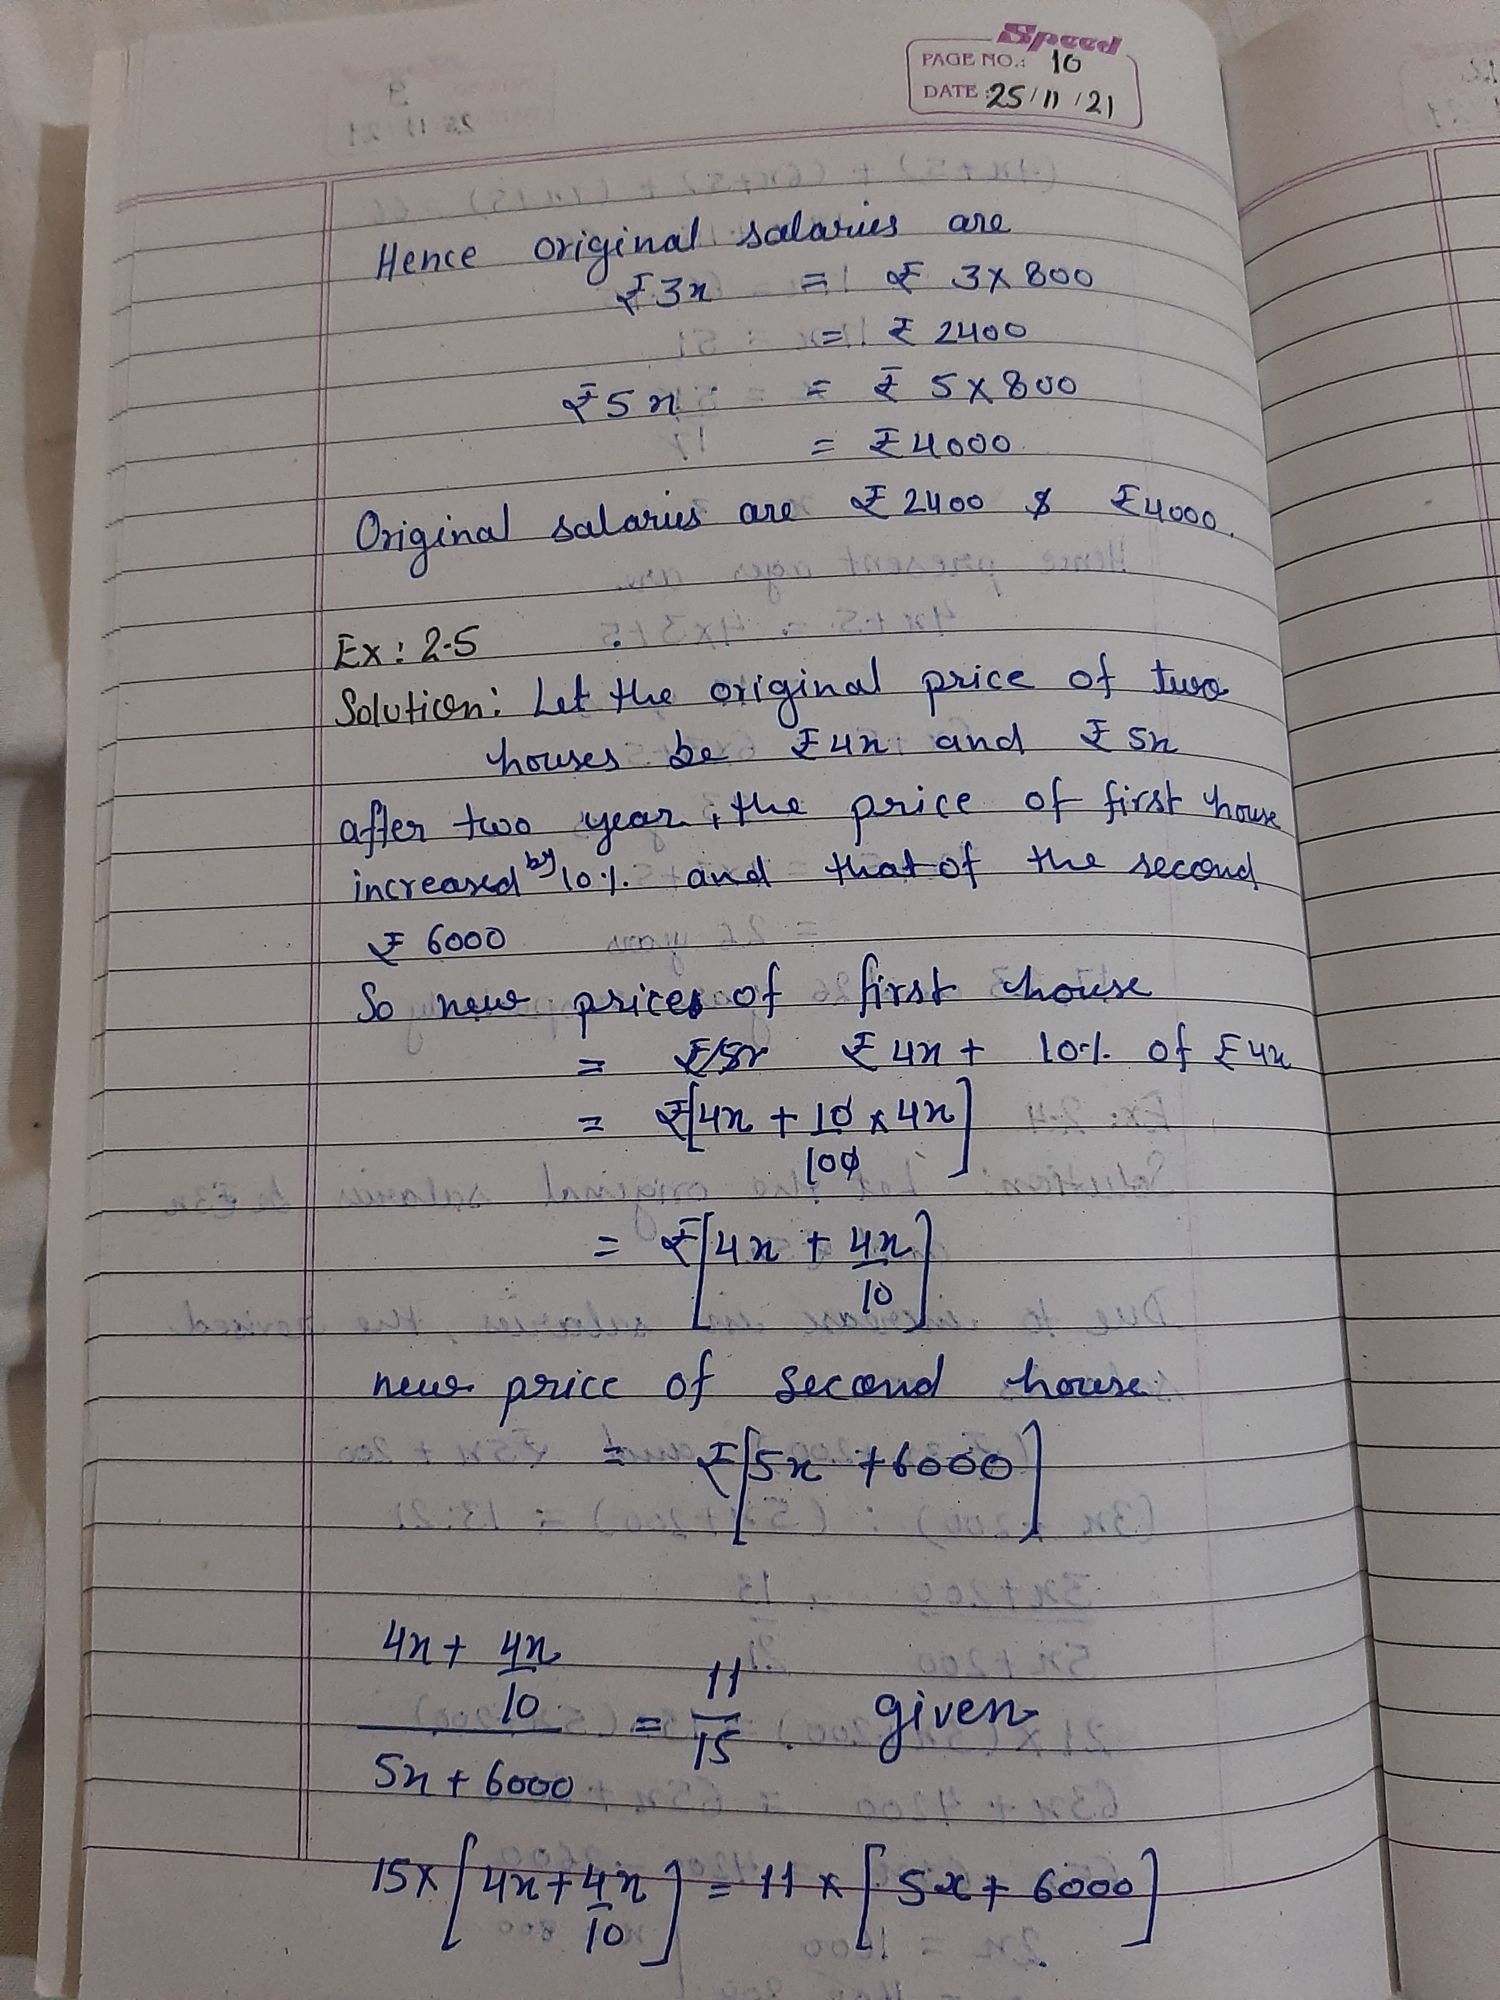 Speed
PAGE NO.: 10
DATE 25/11/21
Hence original salaries are
₹3x = ₹ 3×800
= ₹ 2400
₹5x = ₹ 5×800
= ₹4000
Original salaries are ₹2400 $ ₹4000.
Ex: 2.5
Solution: Let the original price of two
houses be ₹4x and ₹5x
after two year, the price of first house
increased by 10% and that of the second
₹ 6000
So new prices of first house
= ₹ 4x + 10% of ₹4x
= ₹[4x + 10/100 × 4x]
= ₹[4x + 4x/10]
new price of second house
= ₹[5x + 6000]
4x + 4x/10
= 11/15 given
5x + 6000
15×[4x+4x/10] = 11×[5x+6000]